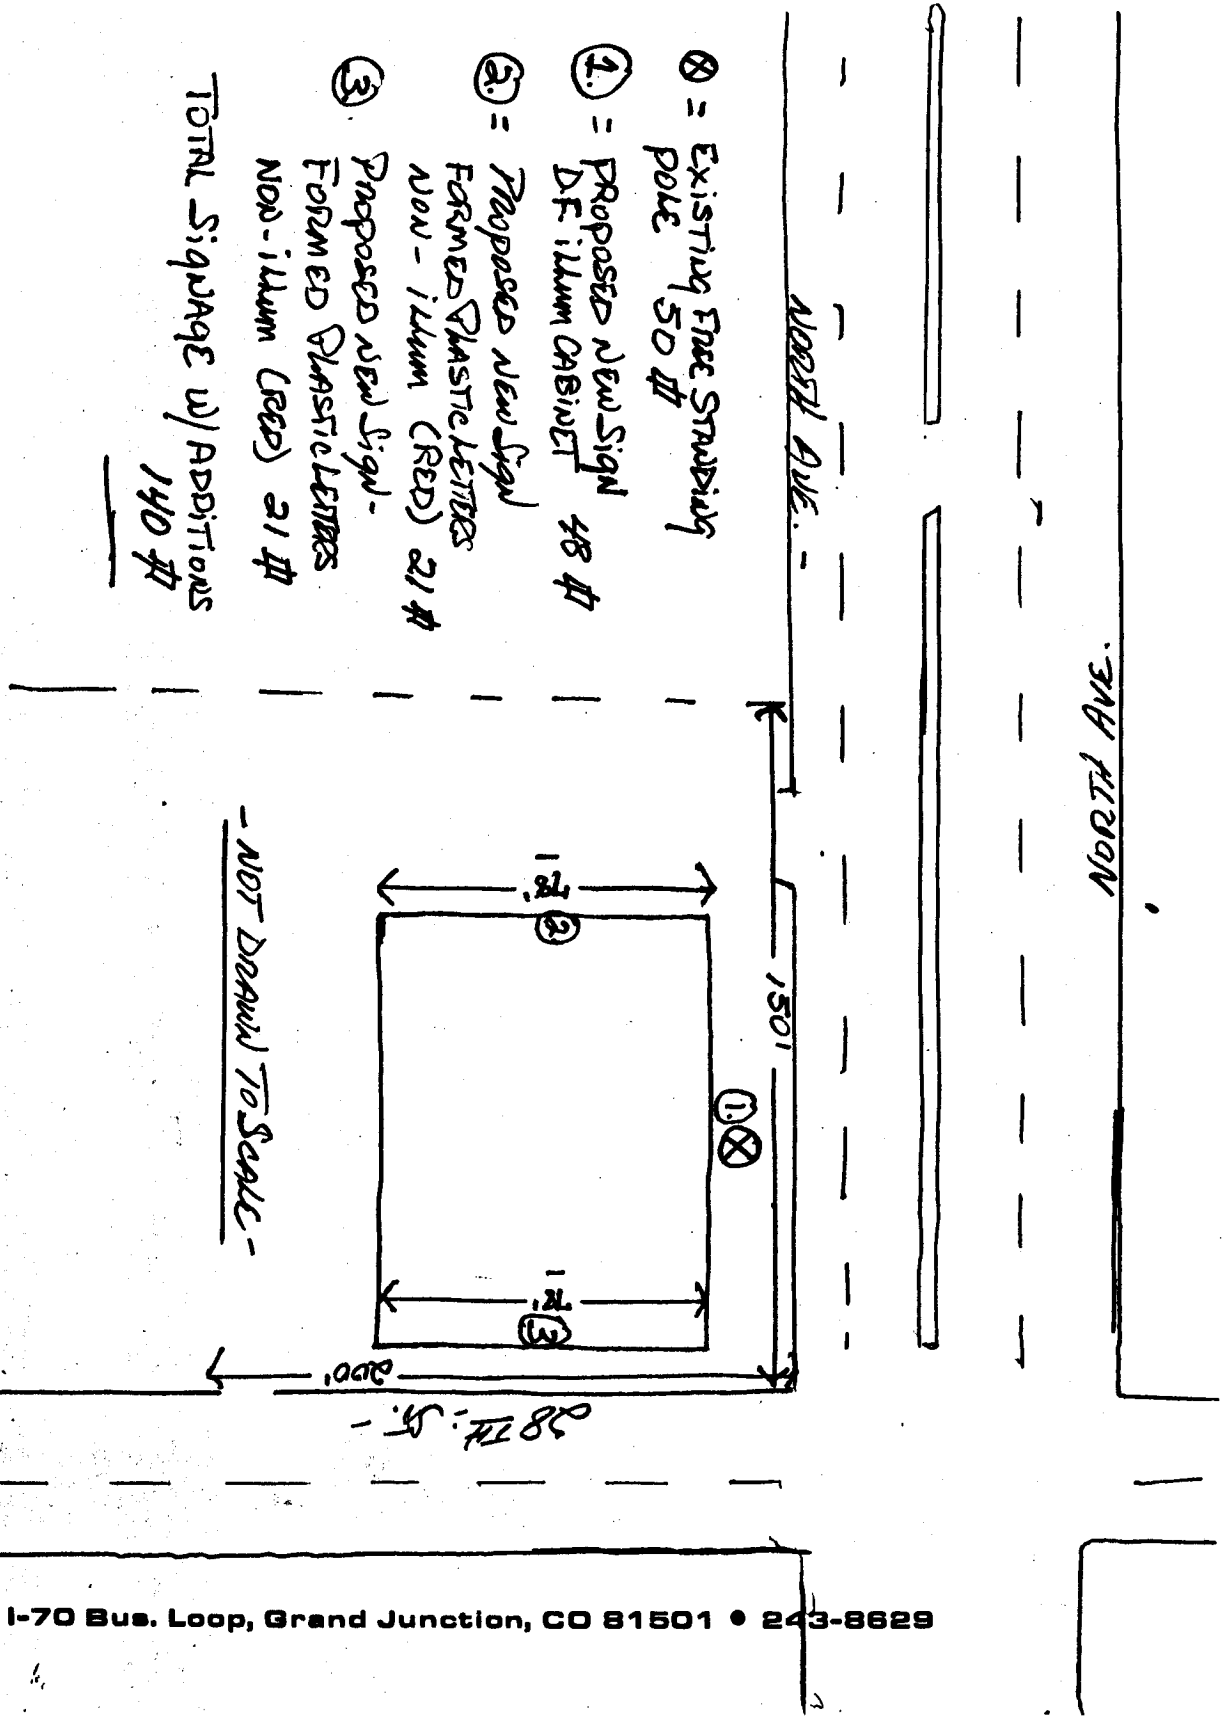 NORTH AVE.
NORTH AVE. -
⊗ = EXISTING FREE STANDING
POLE 50 #
1. = PROPOSED NEW SIGN
D.F. illum CABINET 48 #
2. = PROPOSED NEW SIGN
FORMED PLASTIC LETTERS
NON - illum (RED) 21 #
3. PROPOSED NEW SIGN -
FORMED PLASTIC LETTERS
NON - illum (RED) 21 #
TOTAL SIGNAGE W/ ADDITIONS
140 #
150'
1. ⊗
78'
2
78'
3
200'
28TH ST. -
- NOT DRAWN TO SCALE -
I-70 Bus. Loop, Grand Junction, CO 81501 • 243-8629